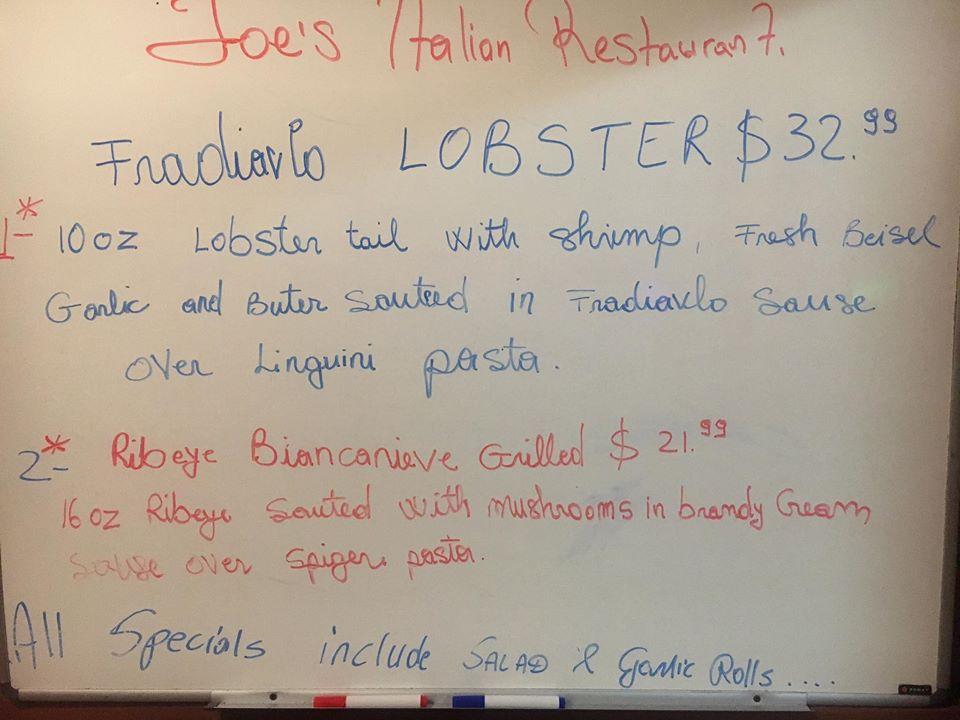 Joe's Italian Restaurant.
Fradiavlo LOBSTER $32.99
1-* 10oz Lobster tail with shrimp, Fresh Beisel
Garlic and Buter Souteed in Fradiavlo Sause
over Linguini pasta.
2-* Ribeye Biancanieve Grilled $ 21.99
16oz Ribeye Souted with mushrooms in brandy Cream
Sause over Spiger pasta.
All Specials include SALAD & Garlic Rolls....